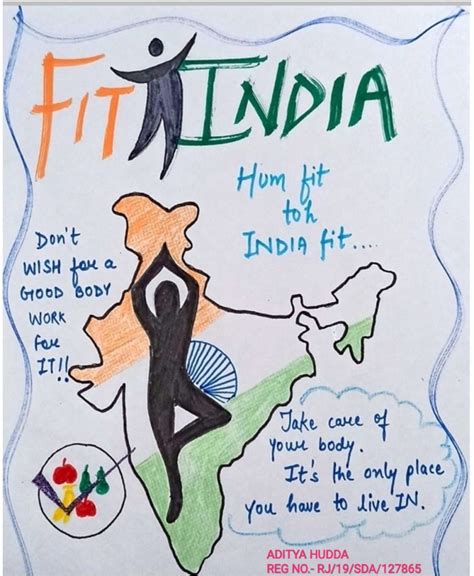 FIT INDIA
Hum fit
toh
INDIA fit....
Don't
WISH for a
GOOD BODY
WORK
for
IT!!
Take care of
your body.
It's the only place
you have to live IN.
ADITYA HUDDA
REG NO.- RJ/19/SDA/127865